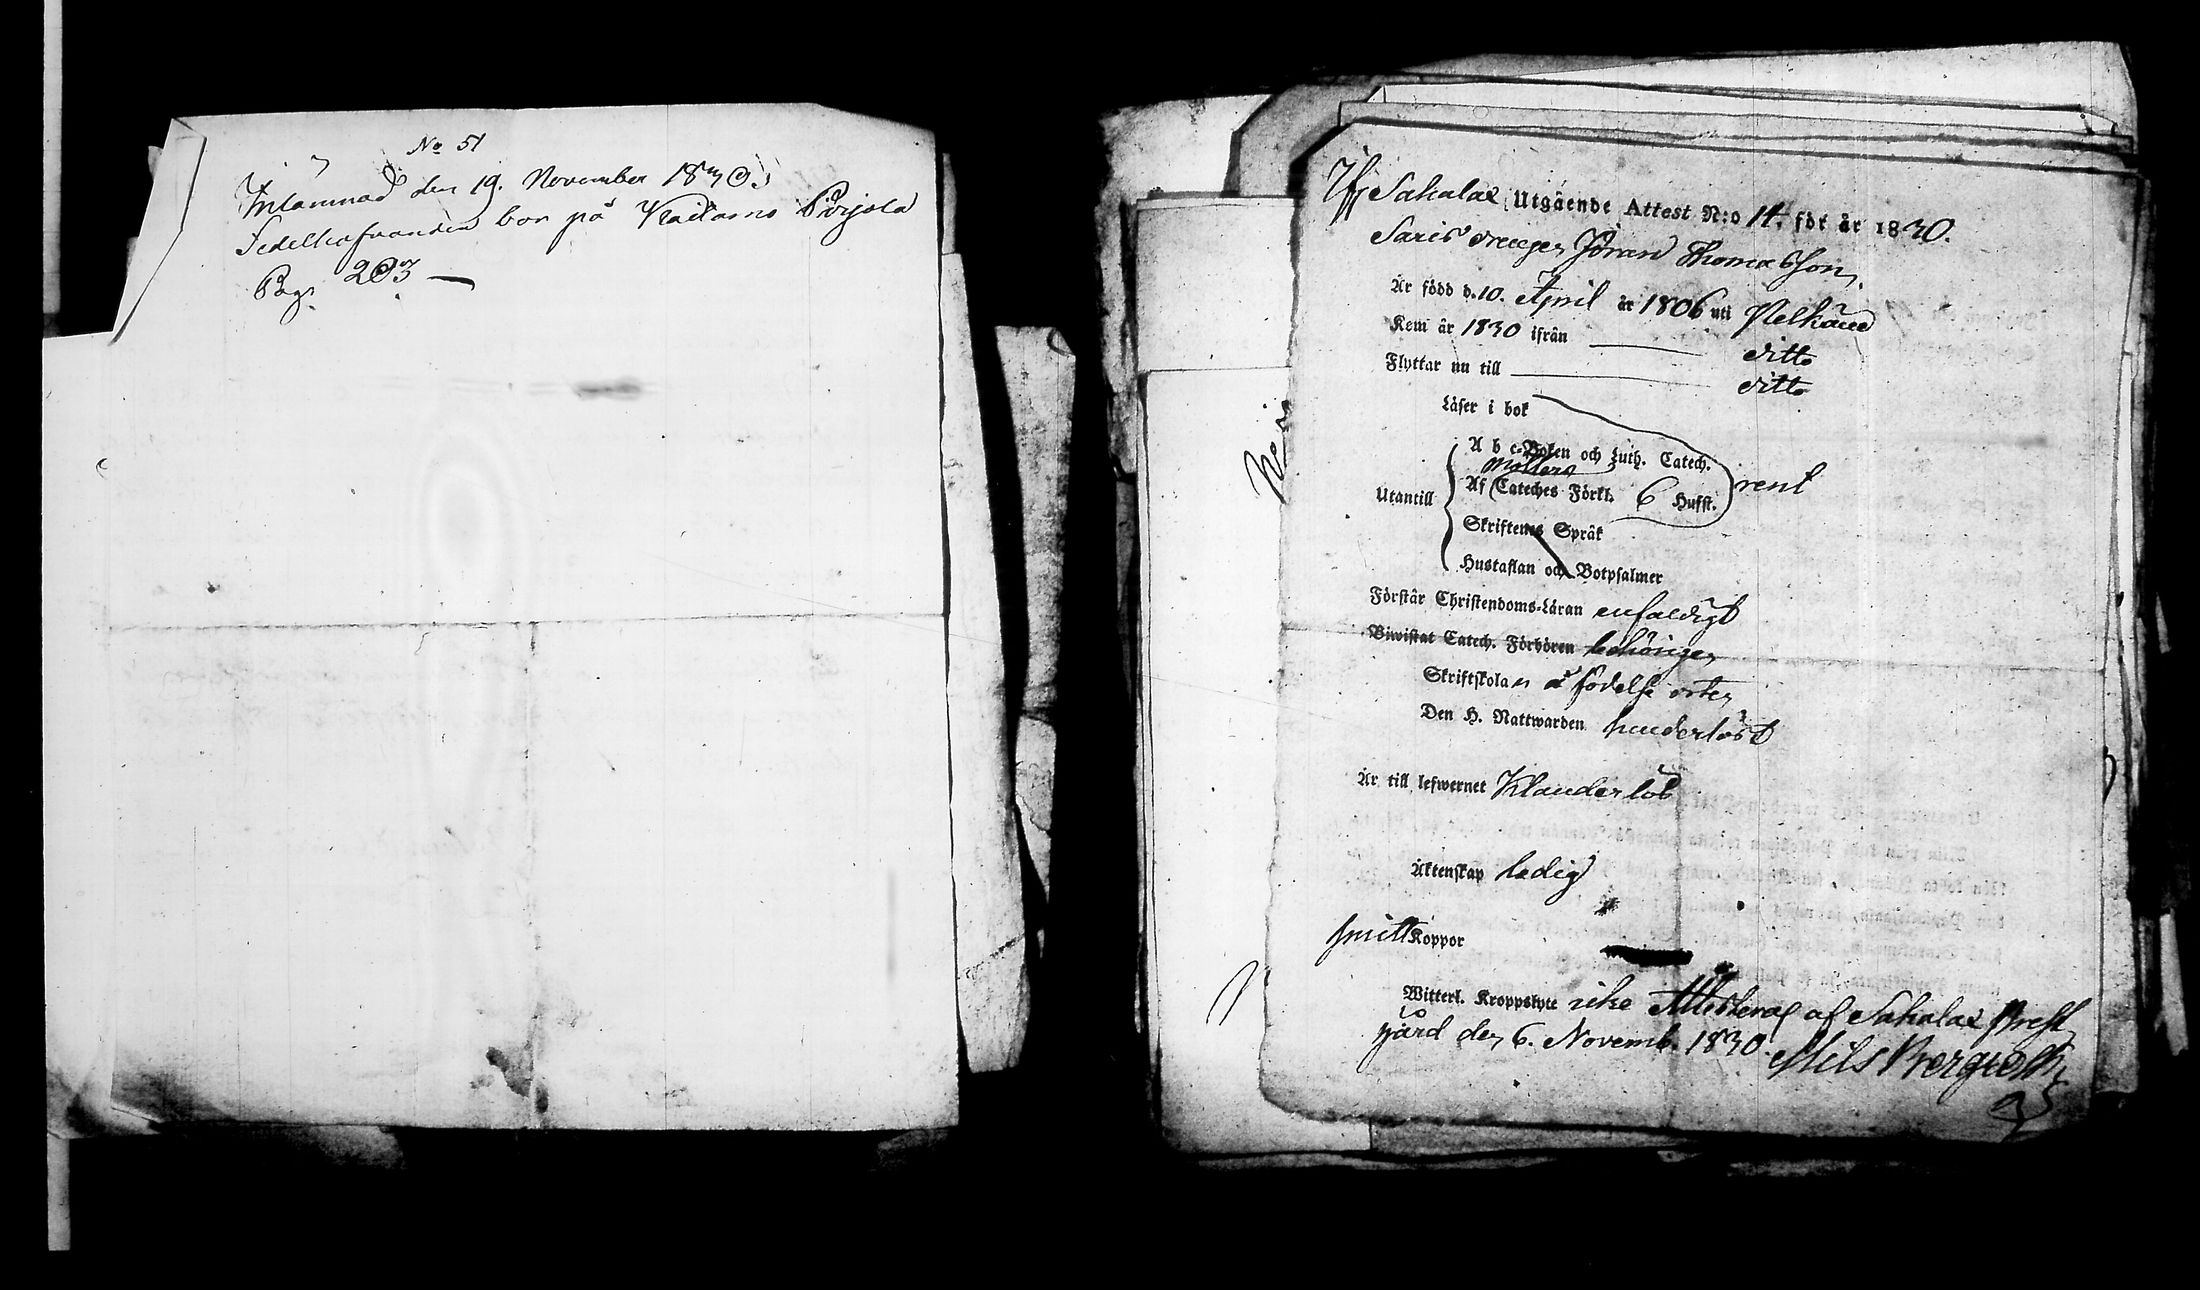 No 51
Inlämnad den 19. November 1830.
Sedelhafvanden bor på Kailamo Pirjola
Pag. 203 —
Ifr. Sahalax Utgående Attest N:o 14. för år 1830.
drengen Jöran Thomasson,
Är född d. 10. April år 1806 uti Pelkäne
Kom år 1830 ifrån ditto
Flyttar nu till ditto
Läser i bok
A b c-Boken och Luth. Catech.
Möllers
Utantill Af Cateches Förkl. 6 Hufst. rent
Skriftenes Språk
Hustaflan och Botpsalmer
Förstår Christendoms-Läran enfaldigt
Biwistat Catech. Förhören behörigen
Skriftskolan å födelse orten
Den H. Nattwarden hinderlöst
Är till lefwernet Klanderlös
Äktenskap ledig
Koppor
Witterl. Kroppslyte icke Attesteras af Sahalax Prest
gård den 6. Novemb. 1830.